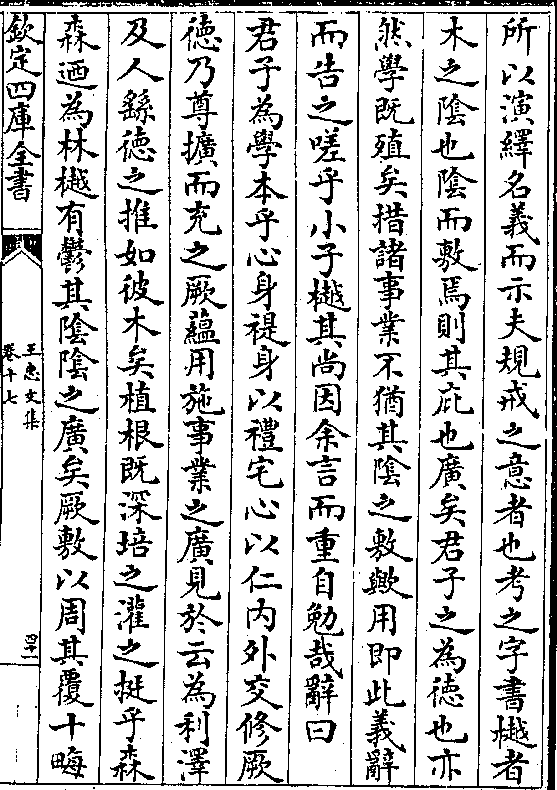 所以演繹名義而示夫規戒之意者也考之字書樾者
木之陰也陰而敷焉則其庇也廣矣君子之為徳也亦
然學既殖矣措諸事業不猶其陰之敷歟用即此義辭
而告之嗟乎小子樾其尚因余言而重自勉哉辭曰
君子為學本乎心身禔身以禮宅心以仁内外交修厥
徳乃尊擴而充之厥蘊用施事業之廣見於云為利澤
及人繇徳之推如彼木矣植根既深培之灌之挺乎森
森迺為林樾有鬱其陰陰之廣矣厥敷以周其覆十畮
欽定四庫全書
王忠文集
卷十七
四十一